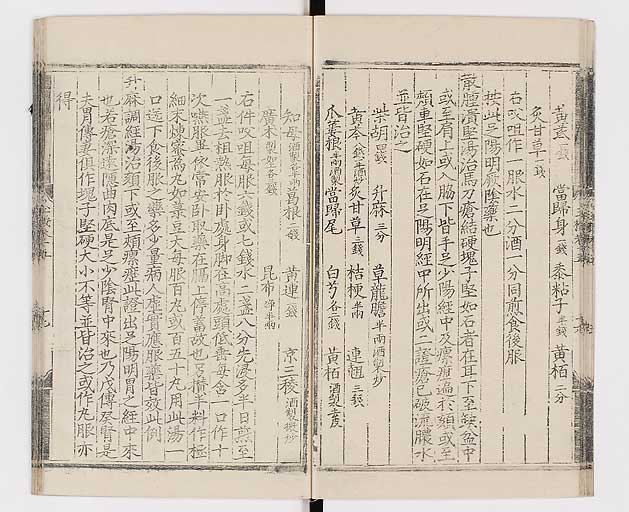 黃芪二錢 當歸身二錢 黍粘子半錢 黃栢二分
炙甘草一錢
右㕮咀作一服水二分酒一分同煎食後服
按此足陽明厥陰藥也
散腫潰堅湯治馬刀瘡結硬塊子堅如石者在耳下至缺盆中
或至肩上或入脇下皆手足少陽經中及瘰癧遍於頦或至
頰車堅硬如石在足陽明經中所出或二證瘡已破流膿水
並皆治之
柴胡四錢 升麻三分 草龍膽半兩酒製炒
黃芩 炙甘草二錢 桔梗半兩 連翹三錢
瓜蔞根半兩酒製 當歸尾 白芍各二錢 黃栢酒製去皮
知母酒製 葛根二錢 黃連一錢 京三稜酒製微炒
廣朮製 昆布淨半兩
右件㕮咀每服六錢或七錢水二盞八分先浸多半日煎至
一盞去柤熱服於臥處身脚在高處頭低垂每含一口作十
次嚥服畢依常安臥取藥在膈上停蓄故也另攢半料作極
細末煉蜜為丸如菉豆大每服百丸或百五十丸用此湯一
口送下食後服之藥多少量病人虛實應服藥皆效此例
升麻調經湯治頦下或至頰瘰癧此證出足陽明胃之經中來
也若瘡深遠隱曲肉底是足少陰腎中來也乃戊傳癸腎是
夫傳妻俱作塊子堅硬大小不等並皆治之或作丸服亦
得